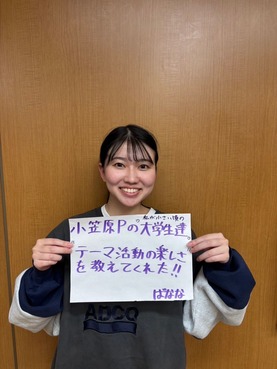 私が小さい頃の
小笠原Pの大学生達
テーマ活動の楽しさ
を教えてくれた!!
ばなな